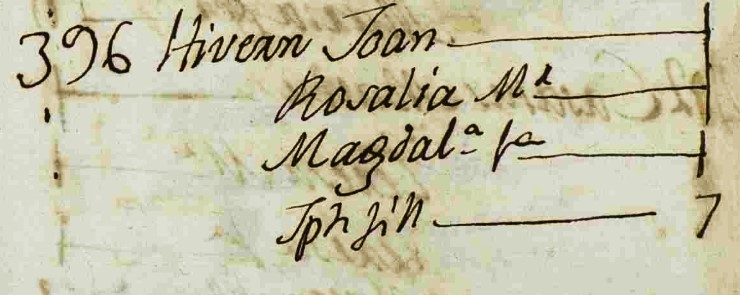 396 Hivern Joan
Rosalia Mª
Magdalª fª
Jph fill 7